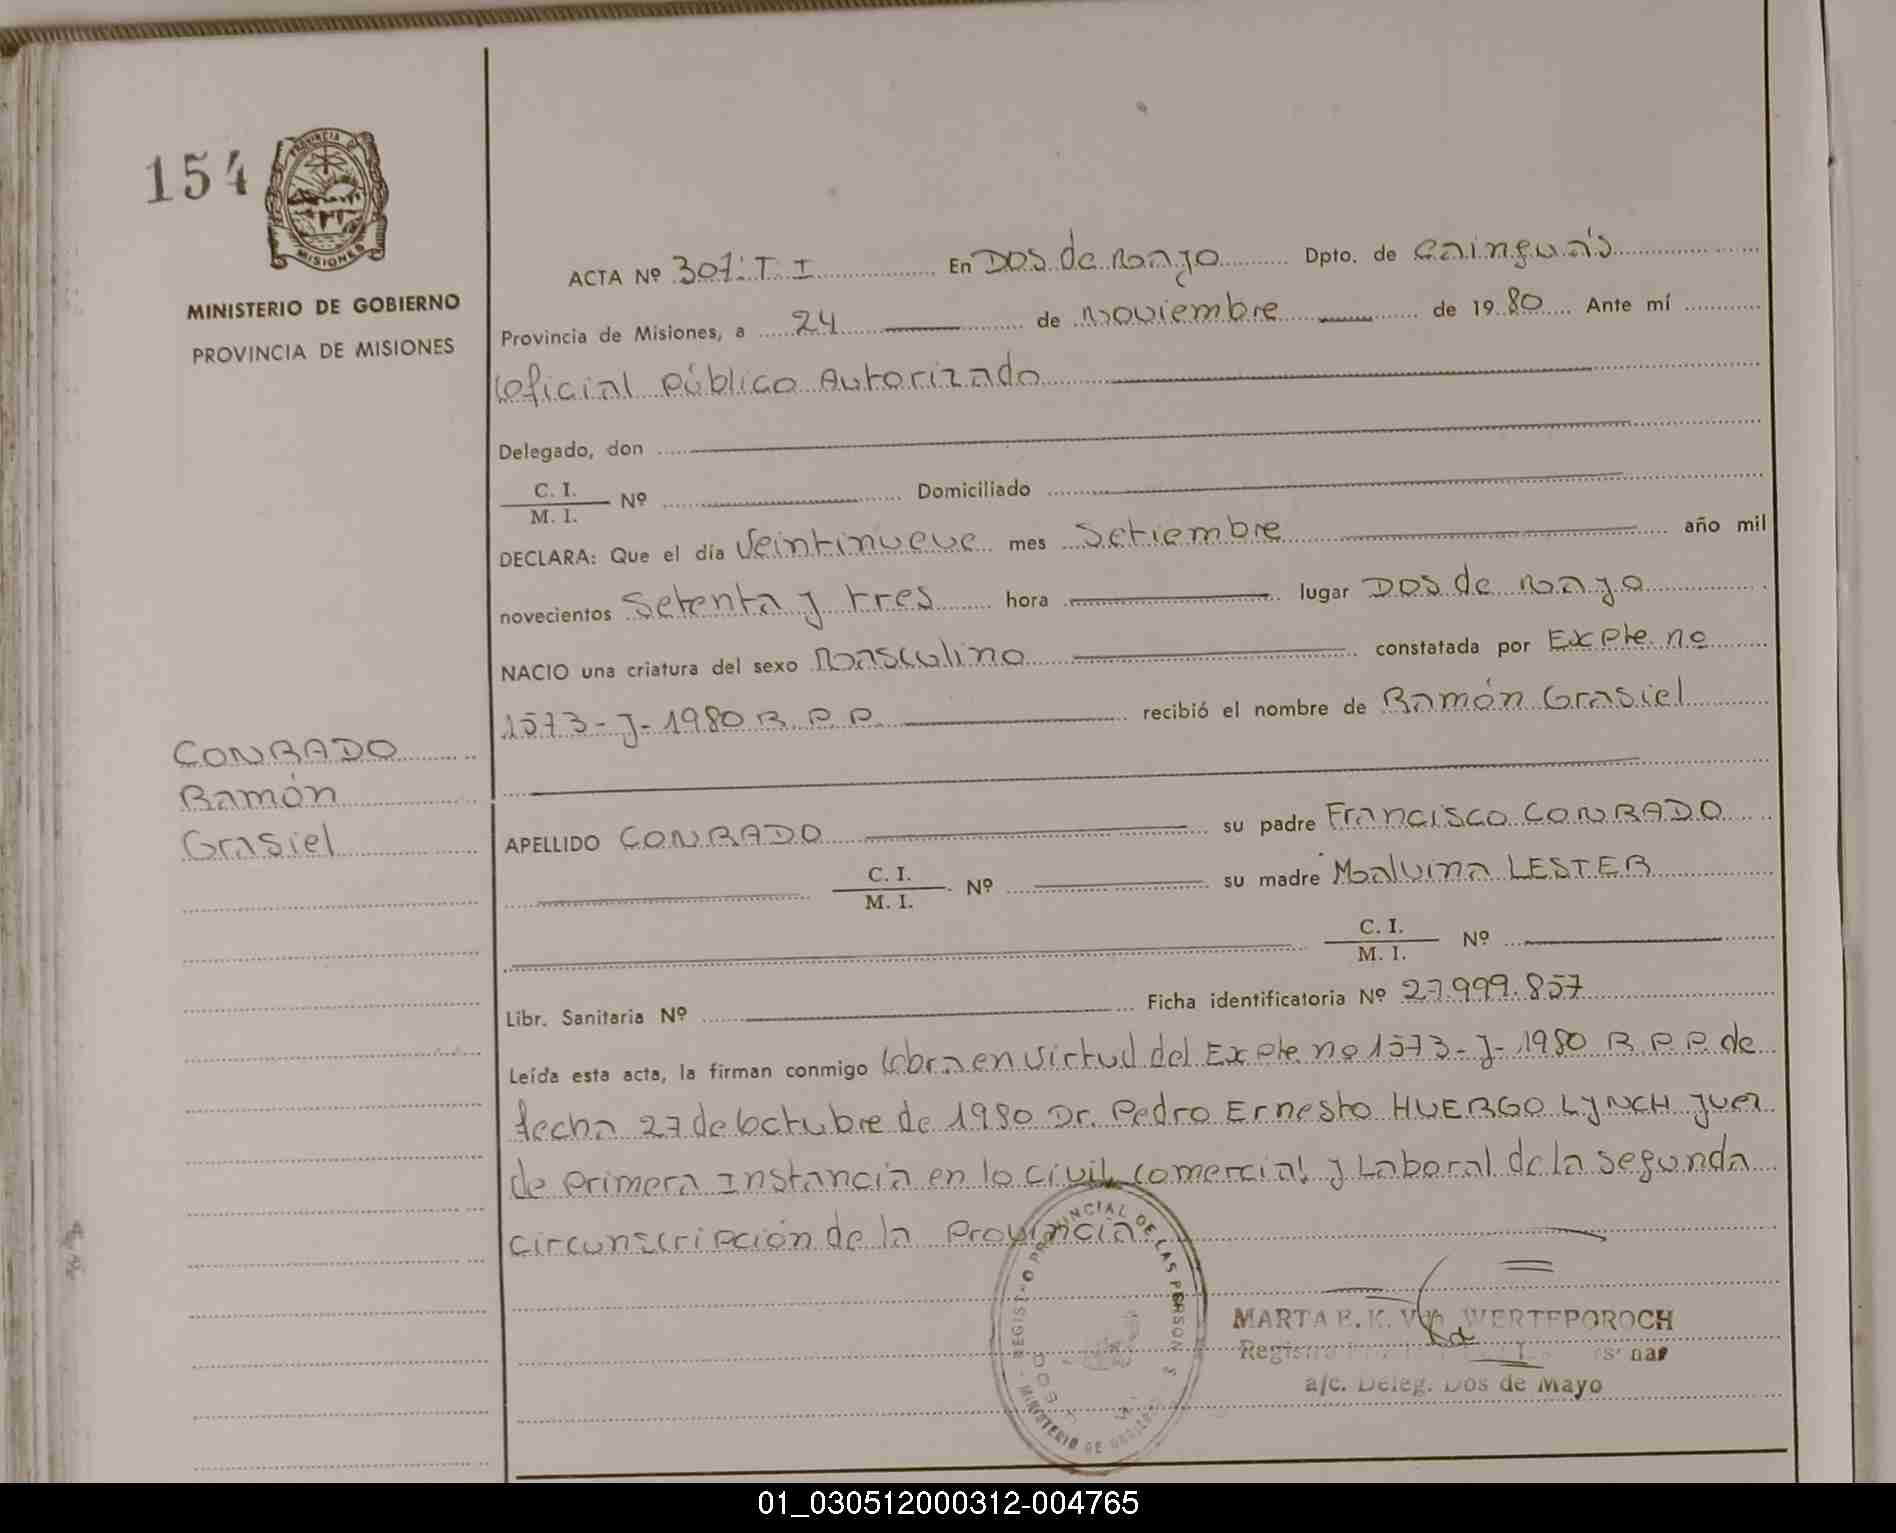 154
PROVINCIA DE
MISIONES
MINISTERIO DE GOBIERNO
PROVINCIA DE MISIONES
ACTA Nº 307: T I En DOS de mayo Dpto. de Cainguás
Provincia de Misiones, a 24 de noviembre de 1980 Ante mí
Oficial Público Autorizado
Delegado, don
C. I.
M. I. Nº Domiciliado
DECLARA: Que el día Veintinueve mes Setiembre año mil
novecientos Setenta y tres hora lugar DOS de mayo
NACIO una criatura del sexo masculino constatada por Expte. nº
1573-J-1980 R.P.P. recibió el nombre de Ramón Grasiel
CONRADO
Ramón
Grasiel
APELLIDO CONRADO su padre Francisco CONRADO
C. I.
M. I. Nº su madre Malvina LESTER
C. I.
M. I. Nº
Libr. Sanitaria Nº Ficha identificatoria Nº 27.999.857
Leída esta acta, la firman conmigo Obra en virtud del Expte nº 1573-J-1980 R.P.P. de
fecha 27 de Octubre de 1980 Dr. Pedro Ernesto HUERGO LYNCH Juez
de Primera Instancia en lo Civil, Comercial y Laboral de la Segunda
Circunscripción de la Provincia.
REGISTRO PROVINCIAL DE LAS PERSONAS
MINISTERIO DE GOBIERNO
MARTA E. K. WERTEPOROCH
a/c. Deleg. Dos de Mayo
01_030512000312-004765